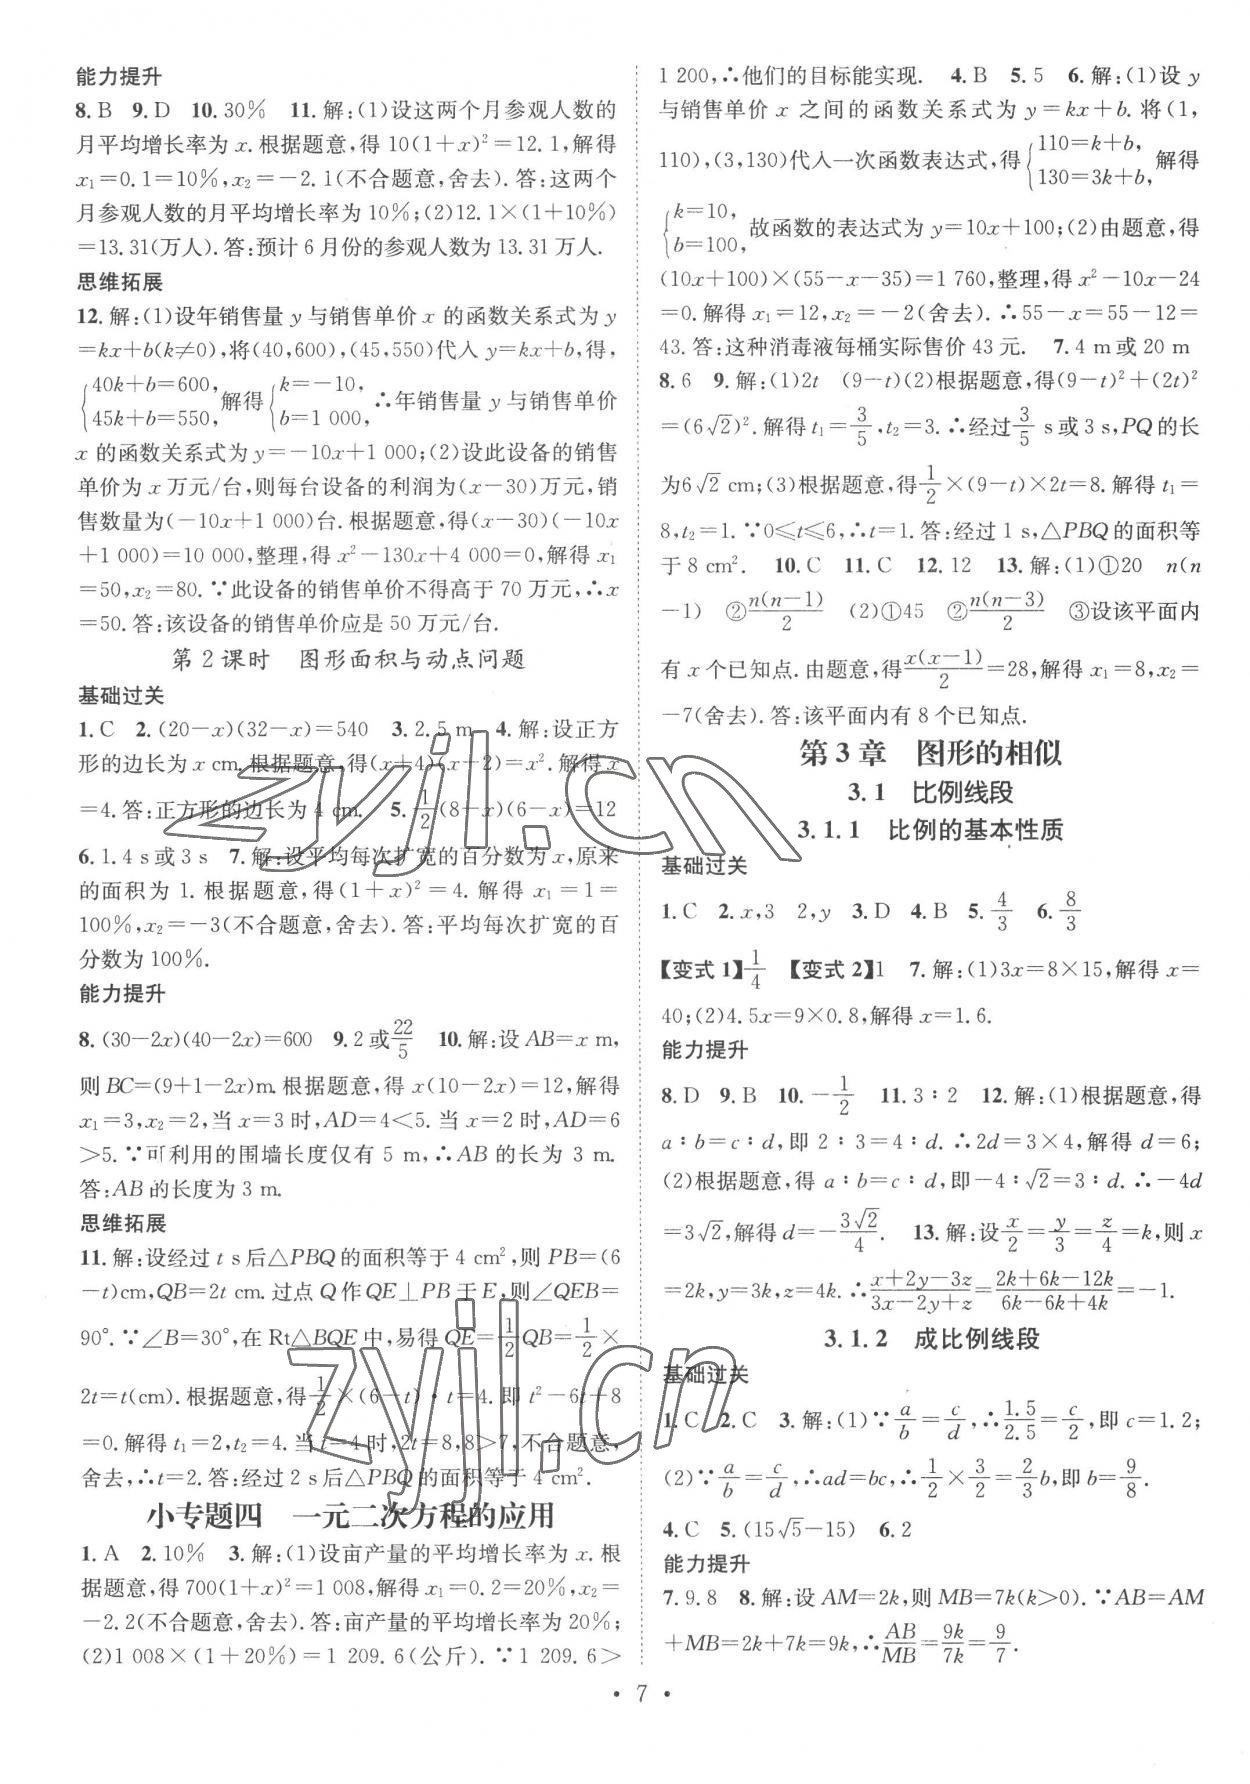 能力提升
8. B  9. D  10. 30%  11. 解:(1)设这两个月参观人数的
月平均增长率为 x. 根据题意,得 10(1+x)²=12.1,解得
x₁=0.1=10%,x₂=-2.1(不合题意,舍去). 答:这两个
月参观人数的月平均增长率为 10%;(2)12.1×(1+10%)
=13.31(万人). 答:预计 6 月份的参观人数为 13.31 万人.
思维拓展
12. 解:(1)设年销售量 y 与销售单价 x 的函数关系式为 y
=kx+b(k≠0),将(40,600),(45,550)代入 y=kx+b,得,
{40k+b=600, 45k+b=550, 解得{k=-10, b=1 000, ∴年销售量 y 与销售单价
x 的函数关系式为 y=-10x+1 000;(2)设此设备的销售
单价为 x 万元/台,则每台设备的利润为(x-30)万元,销
售数量为(-10x+1 000)台. 根据题意,得(x-30)(-10x
+1 000)=10 000,整理,得 x²-130x+4 000=0,解得 x₁
=50,x₂=80. ∵此设备的销售单价不得高于 70 万元,∴x
=50. 答:该设备的销售单价应是 50 万元/台.
第 2 课时  图形面积与动点问题
基础过关
1. C  2. (20-x)(32-x)=540  3. 2.5 m  4. 解:设正方
形的边长为 x cm. 根据题意,得(x+4)(x-2)=x². 解得 x
=4. 答:正方形的边长为 4 cm.  5. 1/2(8-x)(6-x)=12
6. 1.4 s或 3 s  7. 解:设平均每次扩宽的百分数为 x,原来
的面积为 1. 根据题意,得(1+x)²=4. 解得 x₁=1=
100%,x₂=-3(不合题意,舍去). 答:平均每次扩宽的百
分数为 100%.
能力提升
8. (30-2x)(40-2x)=600  9. 2 或22/5  10. 解:设 AB=x m,
则 BC=(9+1-2x)m. 根据题意,得 x(10-2x)=12,解得
x₁=3,x₂=2,当 x=3 时,AD=4<5. 当 x=2 时,AD=6
>5. ∵可利用的围墙长度仅有 5 m,∴AB 的长为 3 m.
答:AB 的长度为 3 m.
思维拓展
11. 解:设经过 t s 后△PBQ 的面积等于 4 cm²,则 PB=(6
-t)cm,QB=2t cm. 过点 Q 作 QE⊥PB 于 E,则∠QEB=
90°. ∵∠B=30°,在 Rt△BQE 中,易得 QE=1/2QB=1/2×
2t=t(cm). 根据题意,得1/2×(6-t)·t=4. 即 t²-6t+8
=0. 解得 t₁=2,t₂=4. 当 t=4 时,2t=8,8>7,不合题意,
舍去,∴t=2. 答:经过 2 s 后△PBQ 的面积等于 4 cm².
小专题四  一元二次方程的应用
1. A  2. 10%  3. 解:(1)设亩产量的平均增长率为 x. 根
据题意,得 700(1+x)²=1 008,解得 x₁=0.2=20%,x₂=
-2.2(不合题意,舍去). 答:亩产量的平均增长率为 20%;
(2)1 008×(1+20%)=1 209.6(公斤). ∵1 209.6>
1 200,∴他们的目标能实现.  4. B  5. 5  6. 解:(1)设 y
与销售单价 x 之间的函数关系式为 y=kx+b. 将(1,
110),(3,130)代入一次函数表达式,得{110=k+b, 130=3k+b, 解得
{k=10, b=100, 故函数的表达式为 y=10x+100;(2)由题意,得
(10x+100)×(55-x-35)=1 760,整理,得 x²-10x-24
=0. 解得 x₁=12,x₂=-2(舍去). ∴55-x=55-12=
43. 答:这种消毒液每桶实际售价 43 元.  7. 4 m 或 20 m
8. 6  9. 解:(1)2t  (9-t)(2)根据题意,得(9-t)²+(2t)²
=(6√2)². 解得 t₁=3/5,t₂=3. ∴经过3/5 s 或 3 s,PQ 的长
为6√2 cm;(3)根据题意,得1/2×(9-t)×2t=8. 解得 t₁=
8,t₂=1. ∵0≤t≤6,∴t=1. 答:经过 1 s,△PBQ 的面积等
于 8 cm².  10. C  11. C  12. 12  13. 解:(1)①20  n(n
-1)  ②n(n-1)/2  (2)①45  ②n(n-3)/2  ③设该平面内
有 x 个已知点. 由题意,得x(x-1)/2=28,解得 x₁=8,x₂=
-7(舍去). 答:该平面内有 8 个已知点.
第 3 章  图形的相似
3.1  比例线段
3.1.1  比例的基本性质
基础过关
1. C  2. x,3  2,y  3. D  4. B  5. 4/3  6. 8/3
【变式 1】1/4  【变式 2】1  7. 解:(1)3x=8×15,解得 x=
40;(2)4.5x=9×0.8,解得 x=1.6.
能力提升
8. D  9. B  10. -1/2  11. 3∶2  12. 解:(1)根据题意,得
a∶b=c∶d,即 2∶3=4∶d. ∴2d=3×4,解得 d=6;
(2)根据题意,得 a∶b=c∶d,即-4∶√2=3∶d. ∴-4d
=3√2,解得 d=-3√2/4.  13. 解:设x/2=y/3=z/4=k,则 x
=2k,y=3k,z=4k. ∴(x+2y-3z)/(3x-2y+z)=(2k+6k-12k)/(6k-6k+4k)=-1.
3.1.2  成比例线段
基础过关
1. C  2. C  3. 解:(1)∵a/b=c/d,∴1.5/2.5=c/2,即 c=1.2;
(2)∵a/b=c/d,∴ad=bc,∴1/2×3/2=2/3b,即 b=9/8.
4. C  5. (15√5-15)  6. 2
能力提升
7. 9.8  8. 解:设 AM=2k,则 MB=7k(k>0). ∵AB=AM
+MB=2k+7k=9k,∴AB/MB=9k/7k=9/7.
• 7 •
zyjl.cn
zyjl.cn